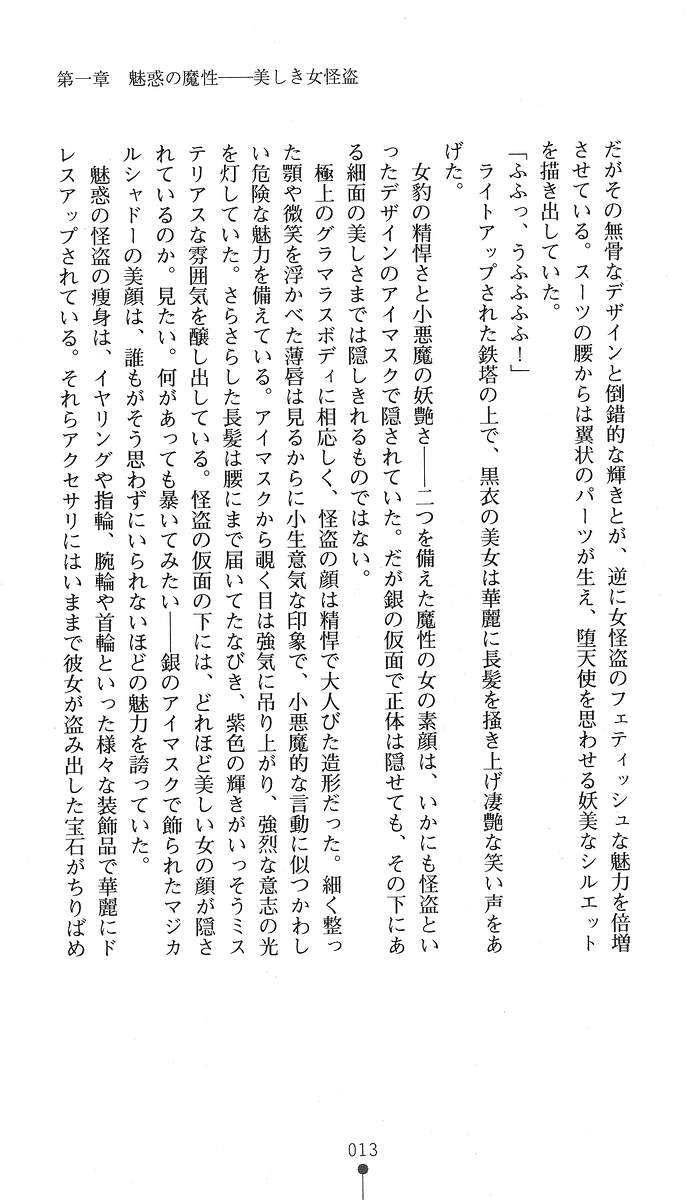 第一章　魅惑の魔性――美しき女怪盗
だがその無骨なデザインと倒錯的な輝きとが、逆に女怪盗のフェティッシュな魅力を倍増
させている。スーツの腰からは翼状のパーツが生え、堕天使を思わせる妖美なシルエット
を描き出していた。
「ふふっ、うふふふふ！」
　ライトアップされた鉄塔の上で、黒衣の美女は華麗に長髪を掻き上げ凄艶な笑い声をあ
げた。
　女豹の精悍さと小悪魔の妖艶さ――二つを備えた魔性の女の素顔は、いかにも怪盗とい
ったデザインのアイマスクで隠されていた。だが銀の仮面で正体は隠せても、その下にあ
る細面の美しさまでは隠しきれるものではない。
　極上のグラマラスボディに相応しく、怪盗の顔は精悍で大人びた造形だった。細く整っ
た顎や微笑を浮かべた薄唇は見るからに小生意気な印象で、小悪魔的な言動に似つかわし
い危険な魅力を備えている。アイマスクから覗く目は強気に吊り上がり、強烈な意志の光
を灯していた。さらさらした長髪は腰にまで届いてたなびき、紫色の輝きがいっそうミス
テリアスな雰囲気を醸し出している。怪盗の仮面の下には、どれほど美しい女の顔が隠さ
れているのか。見たい。何があっても暴いてみたい――銀のアイマスクで飾られたマジカ
ルシャドーの美顔は、誰もがそう思わずにいられないほどの魅力を誇っていた。
　魅惑の怪盗の痩身は、イヤリングや指輪、腕輪や首輪といった様々な装飾品で華麗にド
レスアップされている。それらアクセサリにはいままで彼女が盗み出した宝石がちりばめ
013